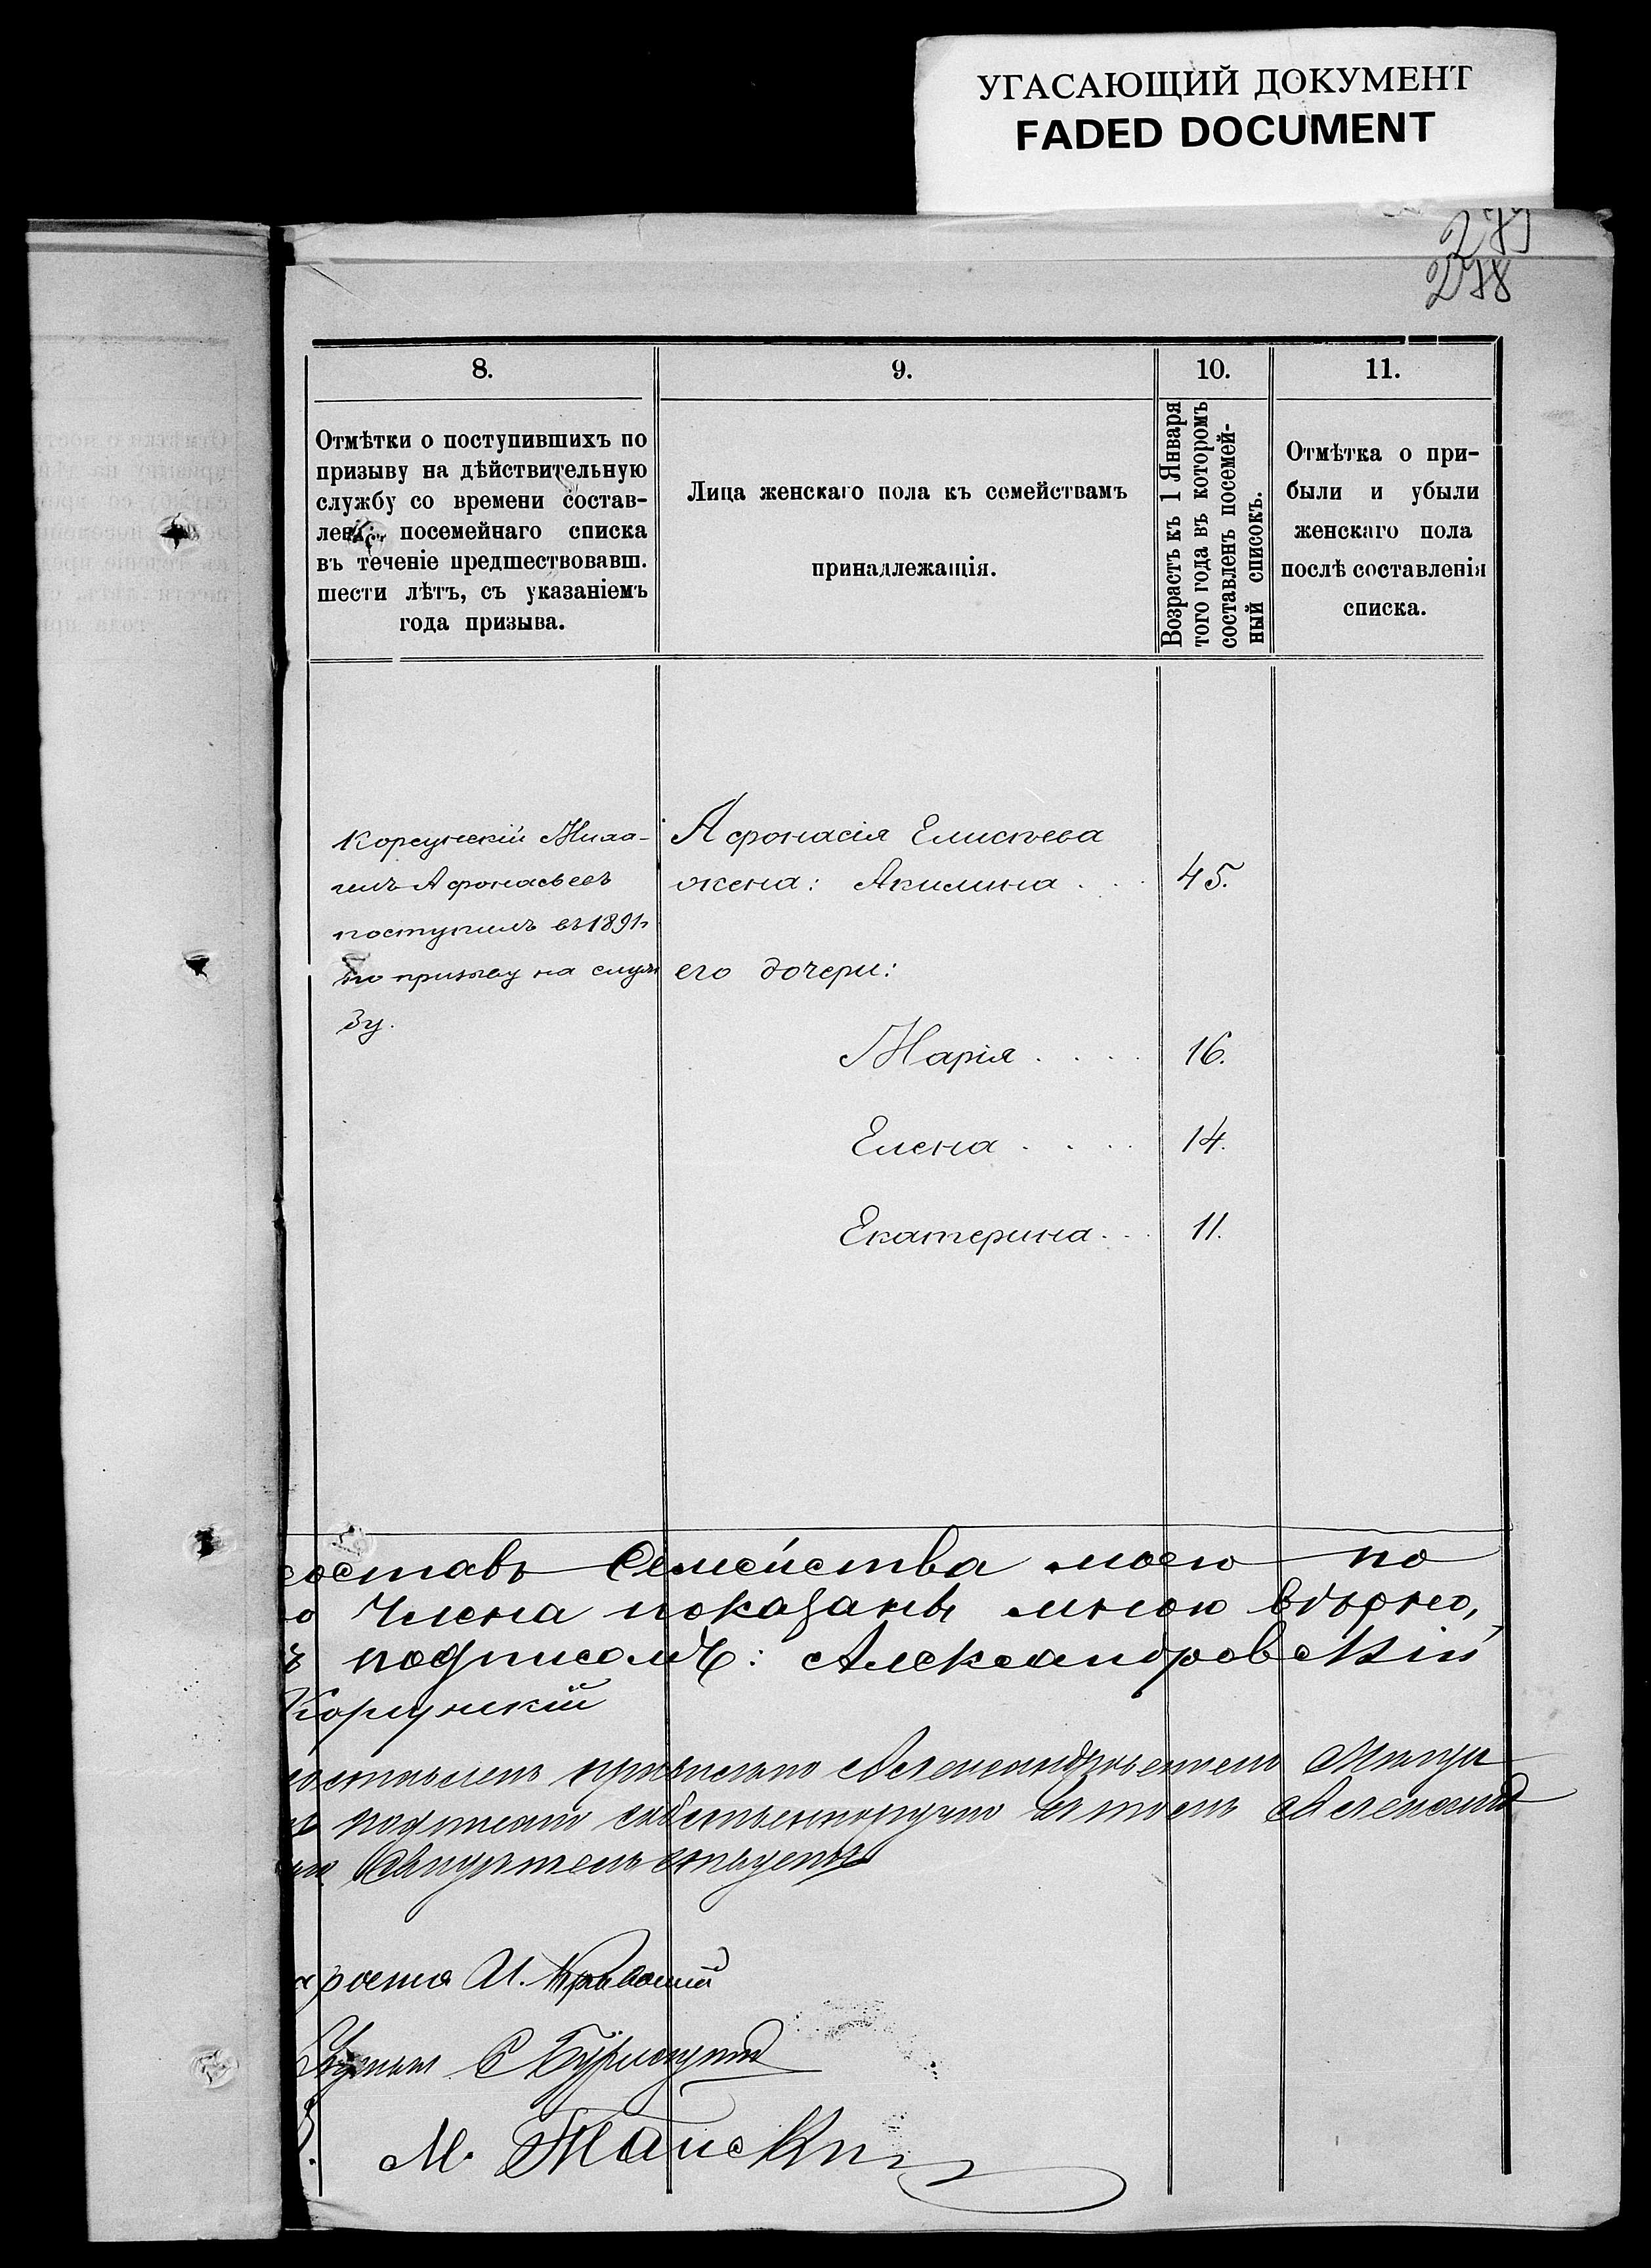 УГАСАЮЩИЙ ДОКУМЕНТ
FADED DOCUMENT
279
278
8.
Отмѣтки о поступившихъ по
призыву на дѣйствительную
службу со времени состав-
лені посемейнаго списка
въ теченіе предшествовавш.
шести лѣтъ, съ указаніемъ
года призыва.
9.
Лица женскаго пола къ семействамъ
принадлежащія.
10.
Возрастъ къ 1 Января
того года въ которомъ
составленъ посемей-
ный списокъ.
11.
Отмѣтка о при-
были и убыли
женскаго пола
послѣ составленія
списка.
Корсунскій Миха-
илъ Афонасьевъ
поступилъ въ 1891 г
по призыву на служ
бу.
Афонасія Елисѣева
жена: Акилина . . . 45.
его дочери:
Марія . . . . 16.
Елена . . . . 14.
Екатерина . . . 11.
составъ Семейства моего по
члена показаны мною вѣрно,
подписомъ: Александровскій
Корсунскій
составленъ правильно
подписано собственноручно въ томъ
роста И.
С
М.